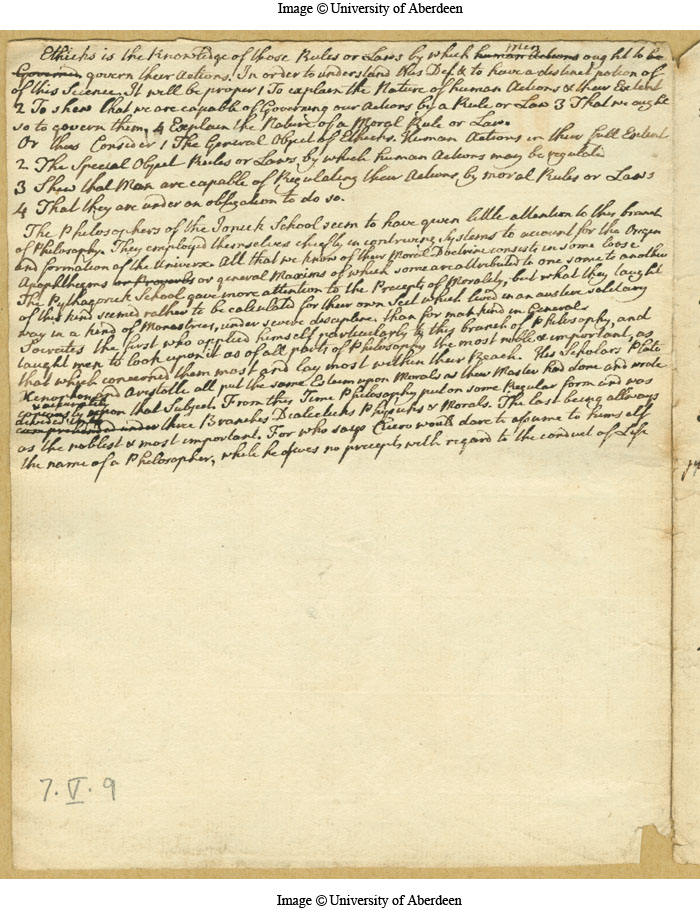 Image © University of Aberdeen
Ethicks is the Knowledge of those Rules or Laws by which human Actions Men ought to be
Governed govern their Actions. In order to understand this Def & to have a distinct notion of
of this Science. It will be proper 1 To explain the Nature of human Actions & their Extent
2 To shew that we are capable of Governing our Actions by a Rule or Law 3 That we ought
so to govern them. 4 Explain the Nature of a Moral Rule or Law.
Or thus Consider 1 The General Object of Ethicks. Human Actions in their full Extent
2 The Special Object Rules or Laws by which human Actions may be regulated
3 Shew that Man are capable of Regulating their Actions by moral Rules or Laws
4 That they are under an obligation to do so.
The Philosophers of the Ionick School seem to have given little attention to this branch
of Philosophy. They employed themselves chiefly in contriving Systems to account for the Origin
and formation of the Universe. All that we know of their Moral Doctrine consists in some loose
Apophthegms or Proverbs or general Maxims of which some are attributed to one some to another
The Pythagorick School gave more attention to the Precepts of Morality, but what they taught
of this kind seemed rather to be calculated for their own Sect which lived in an austere solitary
way in a kind of Monastries, under severe discipline. than for man kind in General
Socrates the first who applied himself particularly to this branch of Philosophy, and
taught men to look upon it as of all parts of Philosophy the most noble & important, as
that which concerned them most and lay most within their Reach. His Scholars Plato
Xenophon and Aristotle all put the same Esteem upon Morals as their Master had done and wrote
copiously & upon that Subject. From this Time Philosophy put on some Regular form and was
divided into comprehended under three Branches Dialectick Physicks & Morals. The last being allways
as the noblest & most important. For who says Cicero would dare to assume to himself
the name of a Philosopher, while he gives no precepts with regard to the conduct of Life
7. V. 9
Image © University of Aberdeen